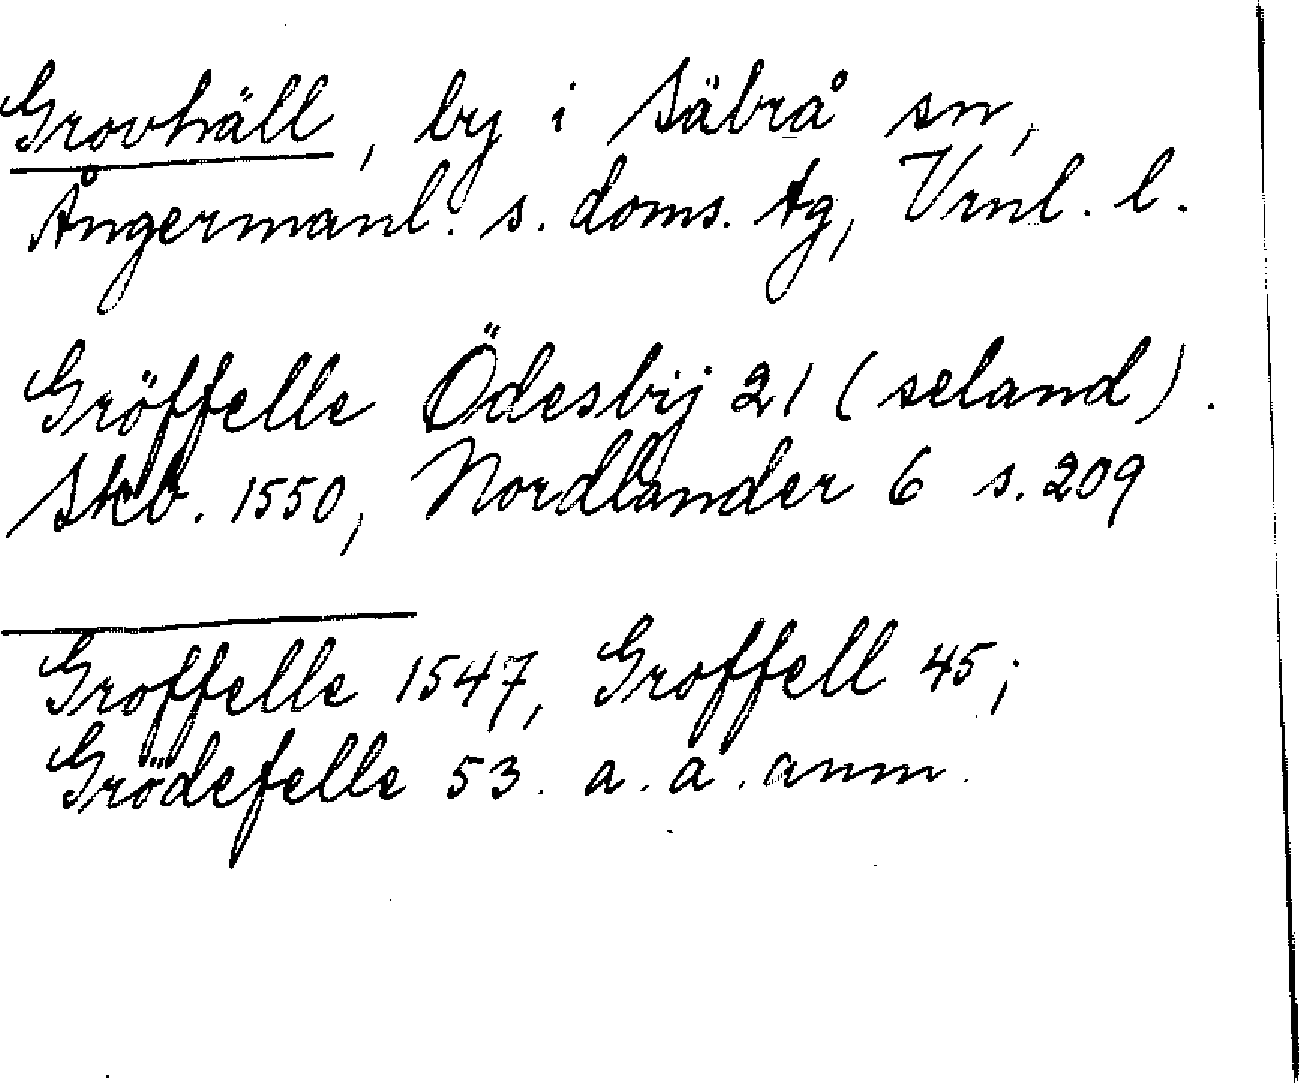 Grovhäll, by i Säbrå sn,
Ångermanl. s. doms. tg, Vrnl. l.
Gröffelle Ödesbij 21 (seland).
Skb. 1550, Nordlander 6 s. 209
Groffelle 1547, Groffell 45;
Grödefelle 53. a. a. anm.